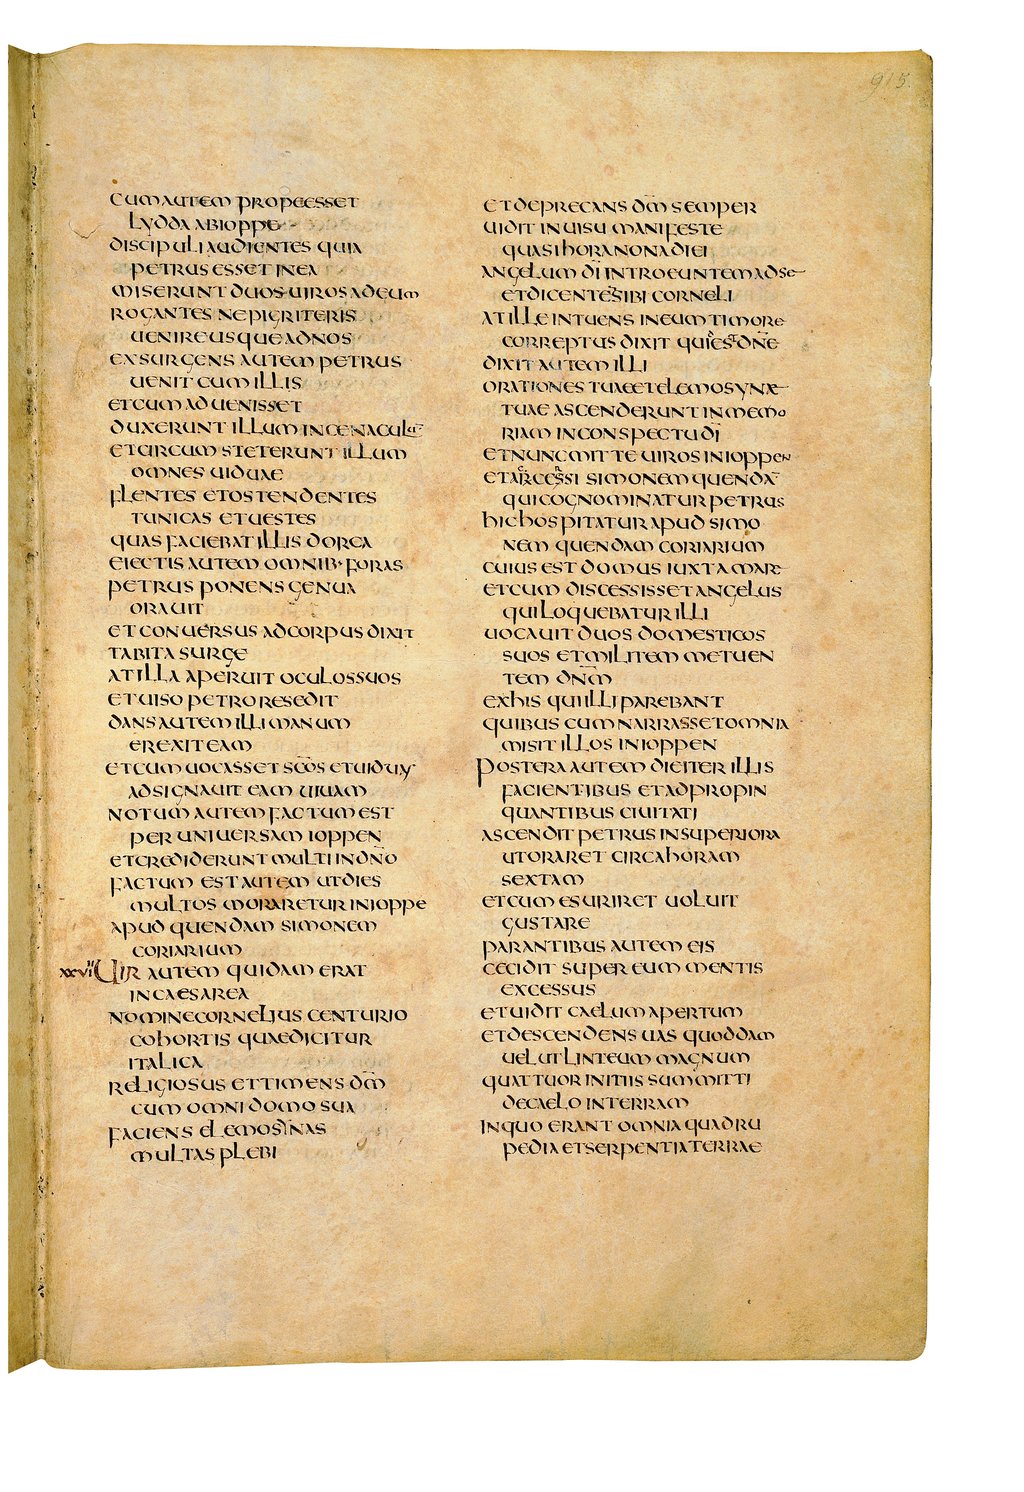 915.
CUM AUTEM PROPE ESSET
LYDDA AB IOPPE
DISCIPULI AUDIENTES QUIA
PETRUS ESSET IN EA
MISERUNT DUOS UIROS AD EUM
ROGANTES NE PIGRITERIS
UENIRE USQUE AD NOS
EXSURGENS AUTEM PETRUS
UENIT CUM ILLIS
ET CUM ADUENISSET
DUXERUNT ILLUM IN CENACULŪ
ET CIRCUMSTETERUNT ILLUM
OMNES UIDUAE
FLENTES ET OSTENDENTES
TUNICAS ET UESTES
QUAS FACIEBAT ILLIS DORCA
EIECTIS AUTEM OMNIB· FORAS
PETRUS PONENS GENUA
ORAUIT
ET CONUERSUS AD CORPUS DIXIT
TABITA SURGE
AT ILLA APERUIT OCULOS SUOS
ET UISO PETRO RESEDIT
DANS AUTEM ILLI MANUM
EREXIT EAM
ET CUM UOCASSET SC̄OS ET UIDUAS
ADSIGNAUIT EAM UIUAM
NOTUM AUTEM FACTUM EST
PER UNIUERSAM IOPPEN
ET CREDIDERUNT MULTI IN DN̄O
FACTUM EST AUTEM UT DIES
MULTOS MORARETUR IN IOPPE
APUD QUENDAM SIMONEM
CORIARIUM
XXVII UIR AUTEM QUIDAM ERAT
IN CAESAREA
NOMINE CORNELIUS CENTURIO
COHORTIS QUAE DICITUR
ITALICA
RELIGIOSUS ET TIMENS DM̄
CUM OMNI DOMO SUA
FACIENS ELEMOSINAS
MULTAS PLEBI
ET DEPRECANS DM̄ SEMPER
UIDIT IN UISU MANIFESTE
QUASI HORA NONA DIEI
ANGELUM DĪ INTROEUNTEM AD SE
ET DICENTEM SIBI CORNELI
AT ILLE INTUENS IN EUM TIMORE
CORREPTUS DIXIT QUIS EST DN̄E
DIXIT AUTEM ILLI
ORATIONES TUAE ET ELEMOSYNAE
TUAE ASCENDERUNT IN MEMO
RIAM IN CONSPECTU DĪ
ET NUNC MITTE UIROS IN IOPPEN
ET ARCERSI SIMONEM QUENDĀ
QUI COGNOMINATUR PETRUS
HIC HOSPITATUR APUD SIMO
NEM QUENDAM CORIARIUM
CUIUS EST DOMUS IUXTA MARE
ET CUM DISCESSISSET ANGELUS
QUI LOQUEBATUR ILLI
UOCAUIT DUOS DOMESTICOS
SUOS ET MILITEM METUEN
TEM DN̄M
EX HIS QUI ILLI PAREBANT
QUIBUS CUM NARRASSET OMNIA
MISIT ILLOS IN IOPPEN
POSTERA AUTEM DIE ITER ILLIS
FACIENTIBUS ET ADPROPIN
QUANTIBUS CIUITATI
ASCENDIT PETRUS IN SUPERIORA
UT ORARET CIRCA HORAM
SEXTAM
ET CUM ESURIRET UOLUIT
GUSTARE
PARANTIBUS AUTEM EIS
CECIDIT SUPER EUM MENTIS
EXCESSUS
ET UIDIT CAELUM APERTUM
ET DESCENDENS UAS QUODDAM
UELUT LINTEUM MAGNUM
QUATTUOR INITIIS SUMMITTI
DE CAELO IN TERRAM
IN QUO ERANT OMNIA QUADRU
PEDIA ET SERPENTIA TERRAE